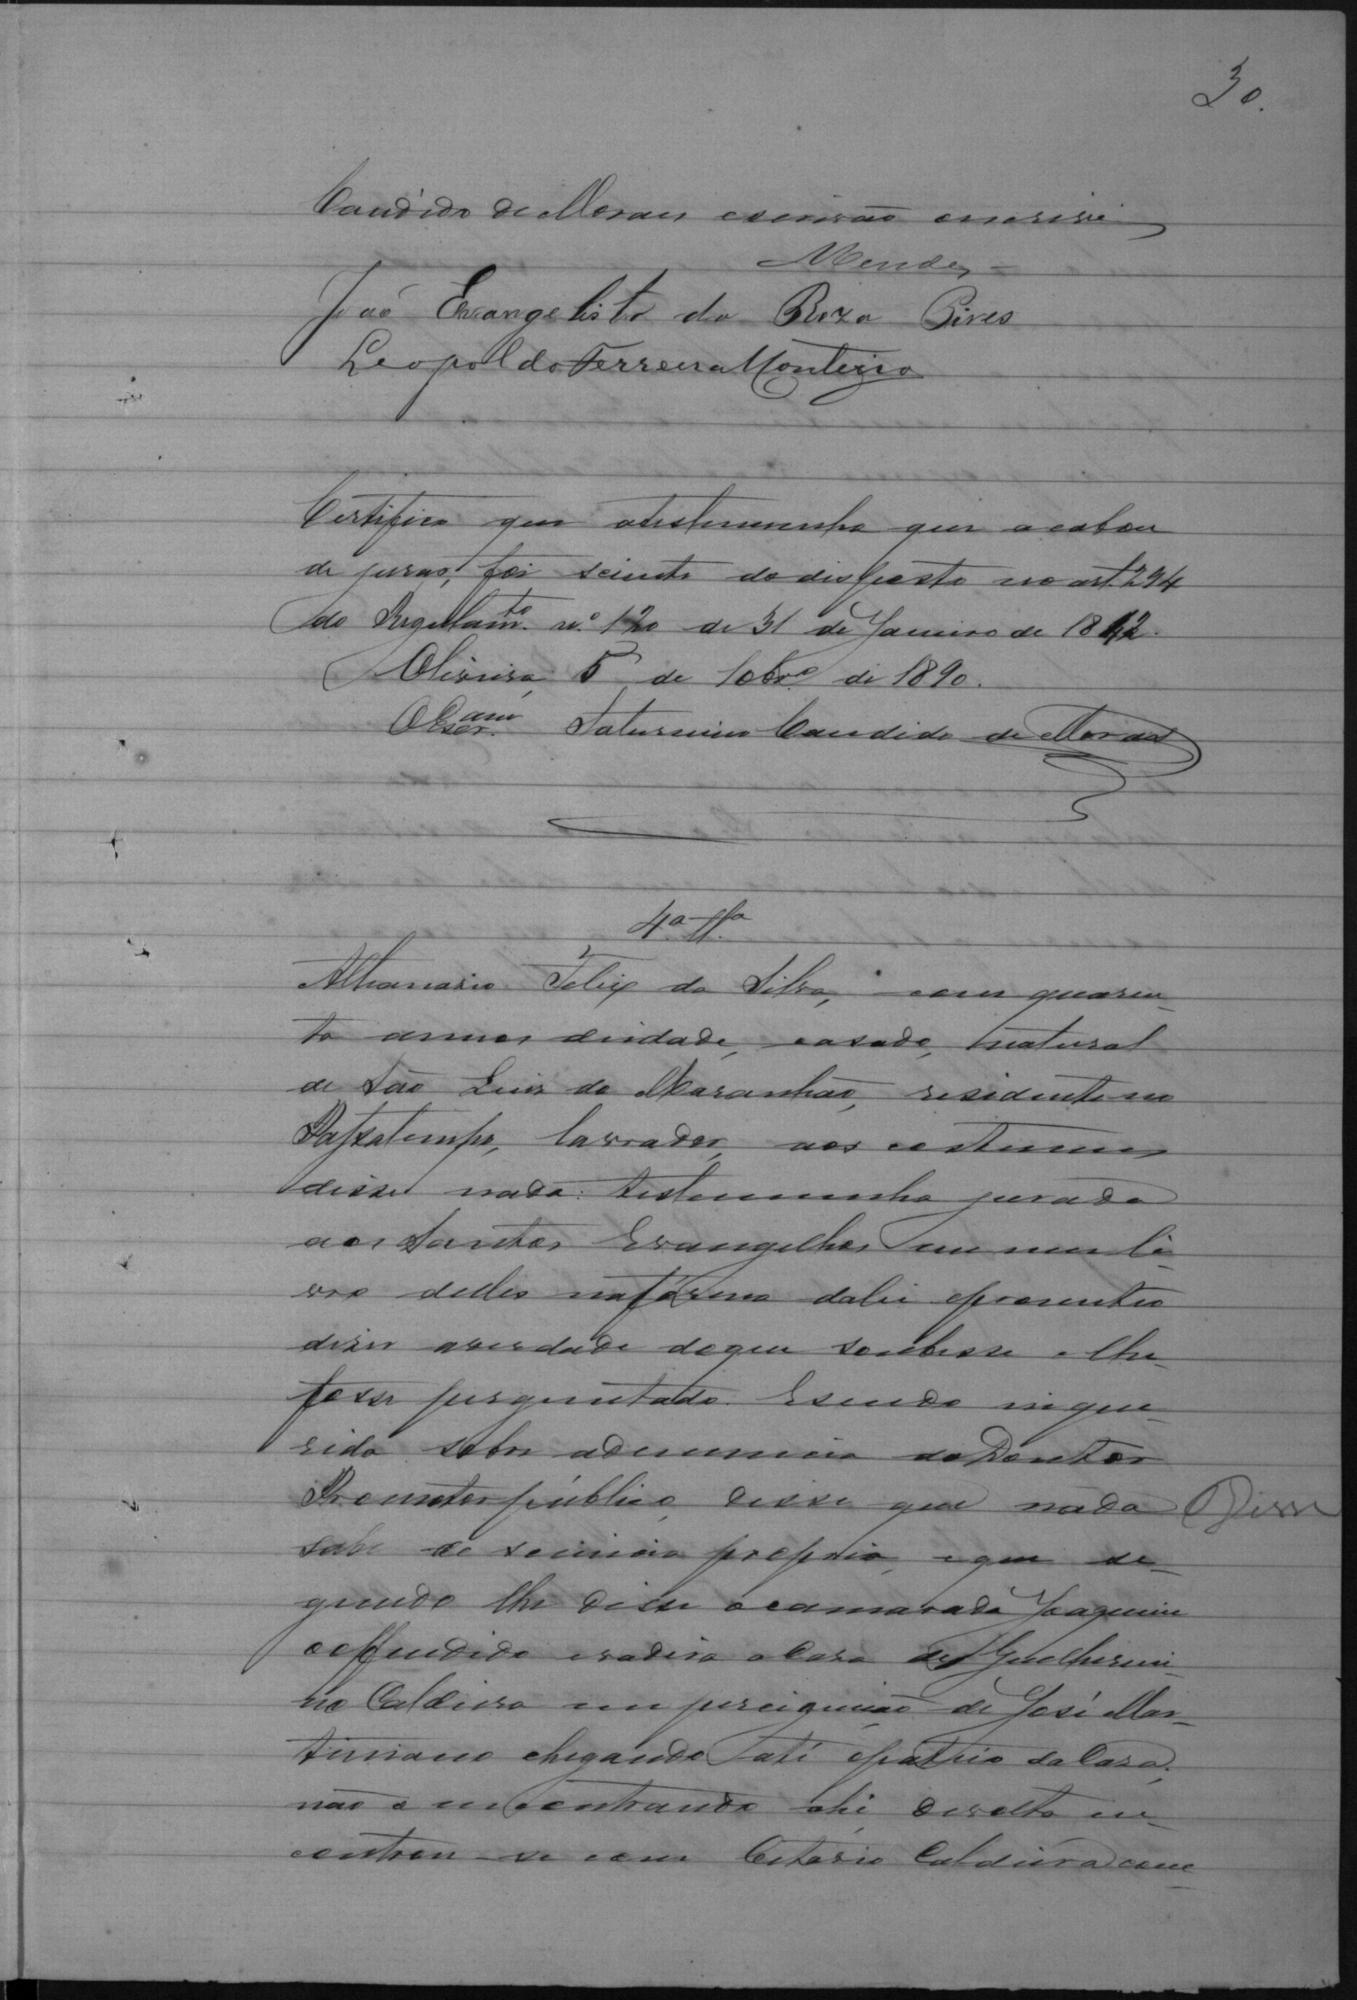 30.
Candido de Moraes escrivão o escrivi
Mendes
João Evangelista da Roza Pires
Leopoldo Ferreira Monteiro
Certifico que atestemunha que acabou
de jurar, foi sciente dodisposto no art. 294
do Regulam.to n.º 120 de 31 de Janeiro de 1842.
Oliveira, 5 de 10br.o de 1890.
O Escr.am Saturnino Candido de Moraes
4.a tt.a
Athanasio Felix da Silva, com quaren-
ta annos deidade, casado, natural
de São Luis do Maranhão, residente no
Passatempo, lavrador, aos costumes
disse nada: testemunha jurada
aos Santos Evangelhos em um li-
vro delles nafórma dalei eprometteo
dizer averdade doque soubesse e lhe
fosse perguntado. Esendo inque-
rido sobre adenuncia do Doutor
Promotor público, disse que nada Disse
sabe de sciencia propria, e que se-
gundo lhe disse ocamarada Joaquim
ooffendido invadira a Casa de Guilhermi-
no Caldeira em perciguição de José Mar-
tiniano chegando até opatrio da Casa;
não o encontrando ahi, devolta en-
controu-se com Octavio Caldeira com-